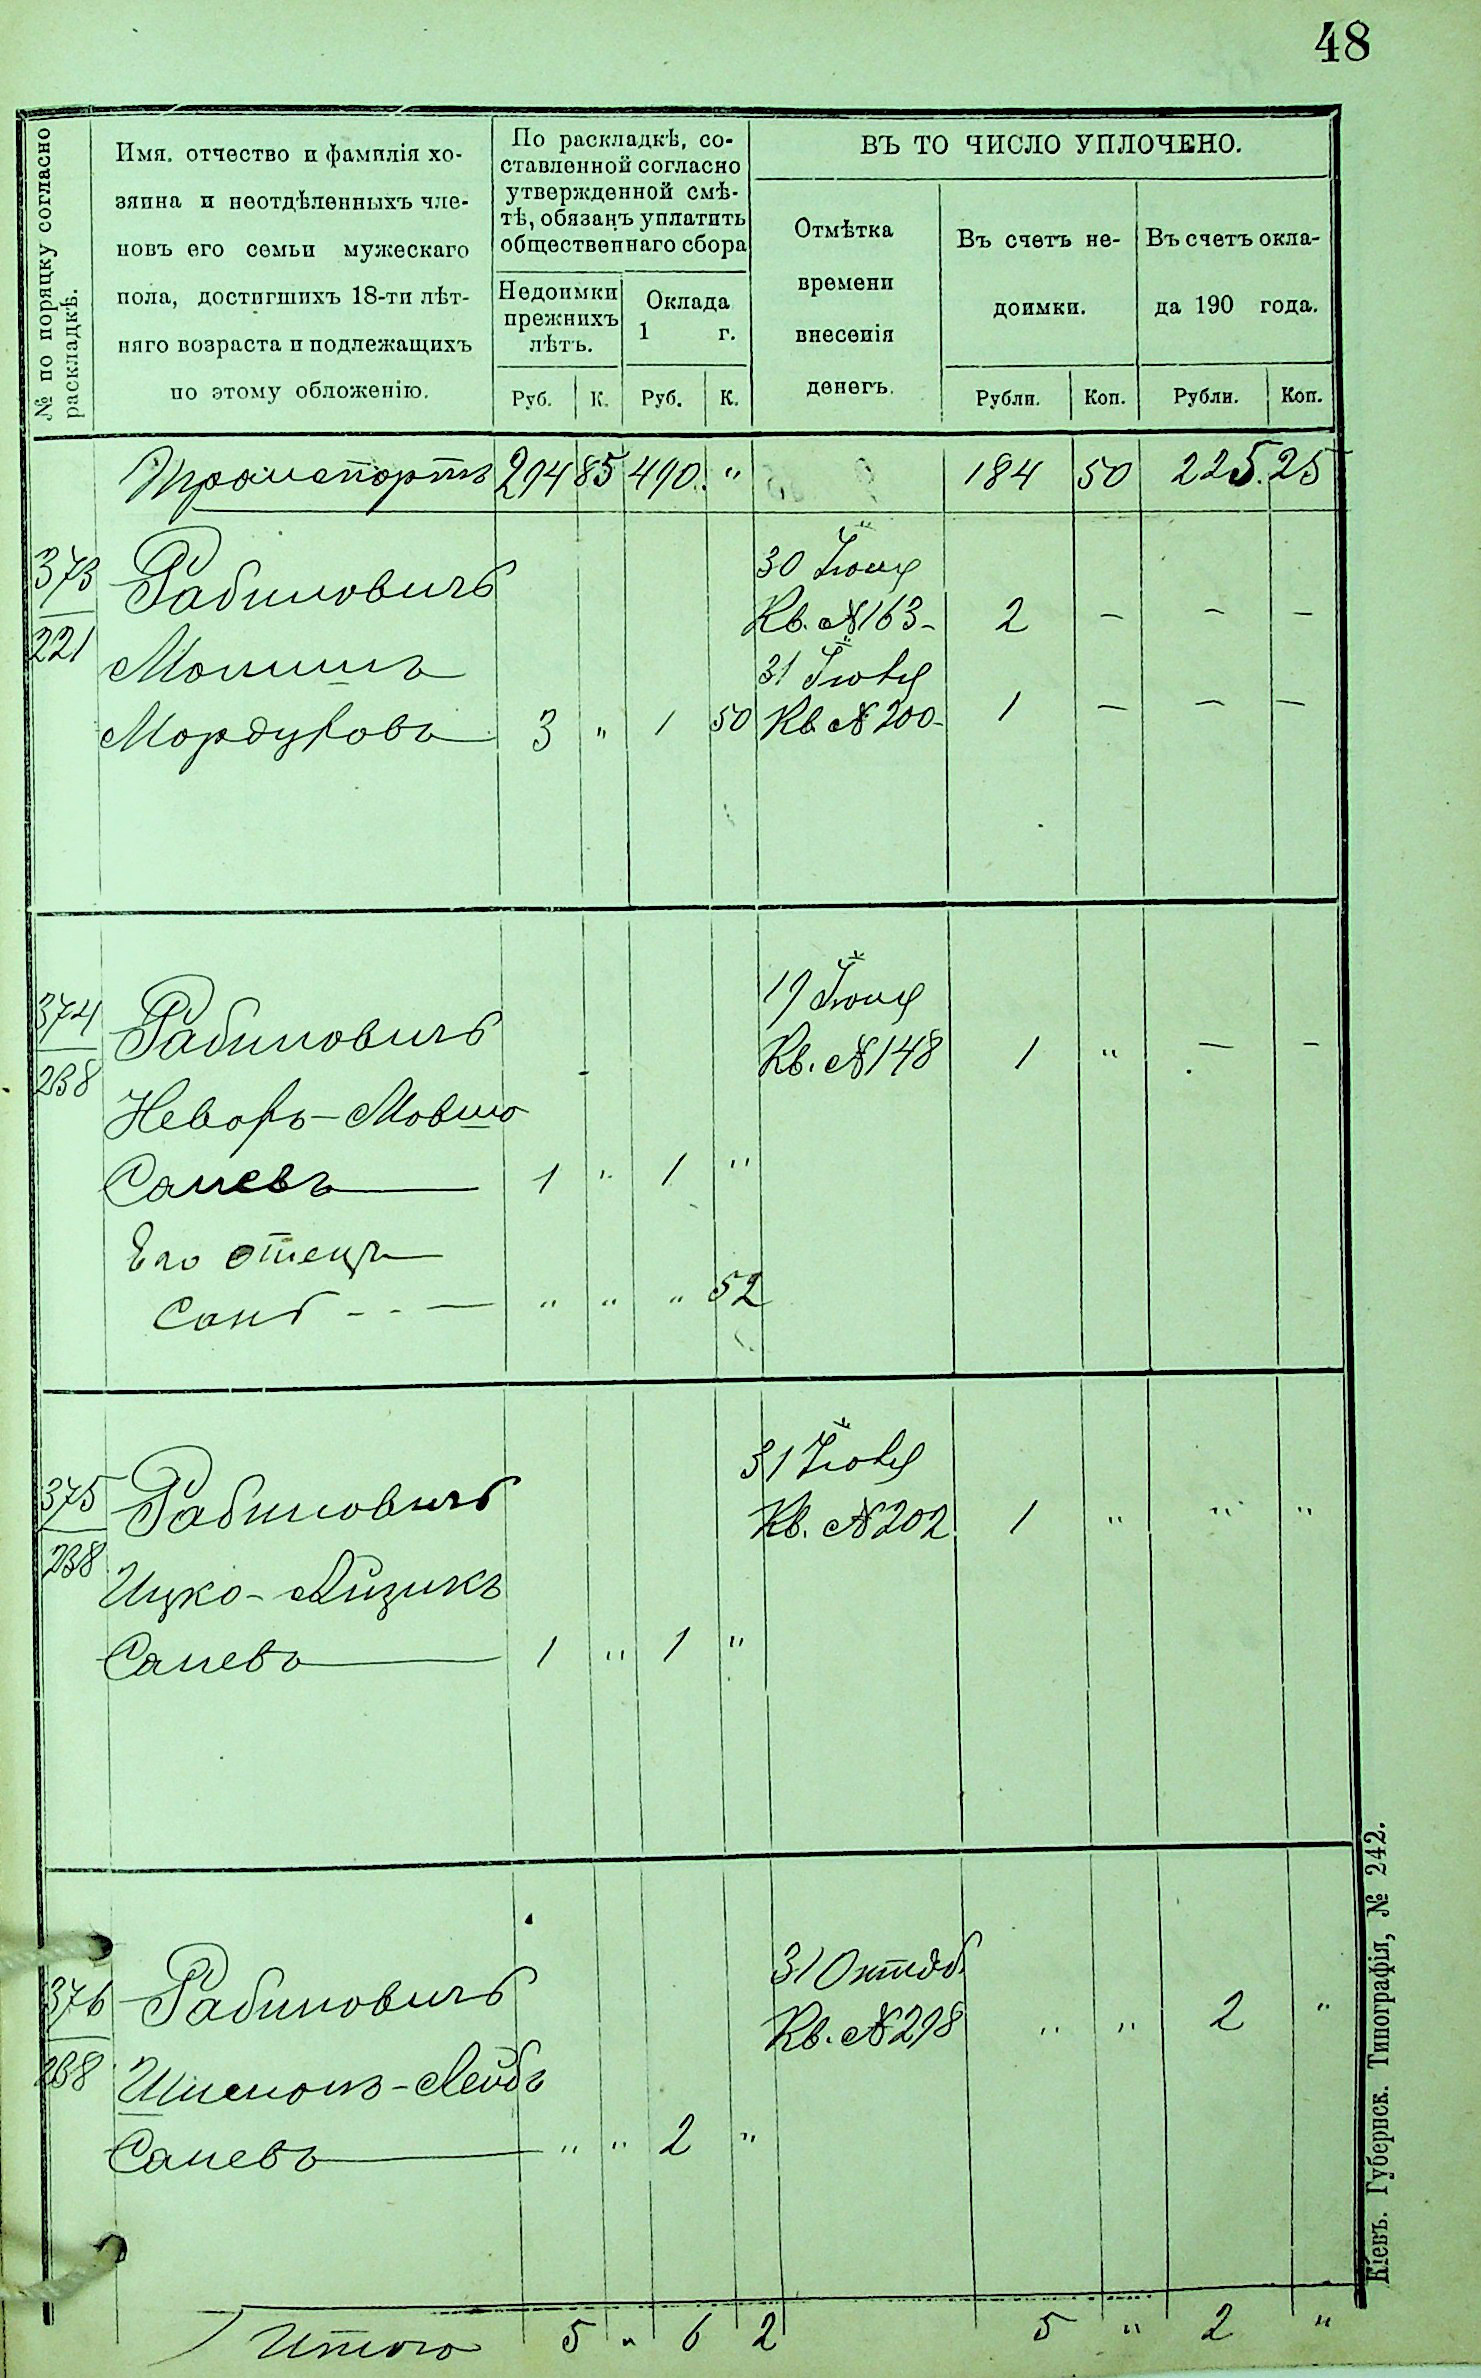 48
№ по порядку согласно
раскладкѣ.
Имя, отчество и фамилія хо-
зяина и неотдѣленныхъ чле-
новъ его семьи мужескаго
пола, достигшихъ 18-ти лѣт-
няго возраста и подлежащихъ
по этому обложенію.
По раскладкѣ, со-
ставленной согласно
утвержденной смѣ-
тѣ, обязанъ уплатить
общественнаго сбора
Недоимки
прежнихъ
лѣтъ.
Руб. К.
Оклада
1 г.
Руб. К.
ВЪ ТО ЧИСЛО УПЛОЧЕНО.
Отмѣтка
времени
внесенія
денегъ.
Въ счетъ не-
доимки.
Рубли. Коп.
Въ счетъ окла-
да 190 года.
Рубли. Коп.
Транспортъ 294 85 490. " 184 50 225. 25
373
221
Рабиновичъ
30 Іюня
Кв. №163- 2 — — —
Мошишъ
31 Іюля
Мордуховъ 3 " 1 50 Кв. №200- 1 — — —
374
238
Рабиновичъ
19 Іюня
Кв. №148 1 " — —
Невахъ-Мовшо
Саневъ 1 " 1 "
Его отецъ
Саня - - — " " " 52
375
238
Рабиновичъ
31 Іюля
Кв. №202 1 " " "
Ицко-Айзикъ
Саневъ 1 " 1 "
376
238
Рабиновичъ
31 Октяб.
Кв. №298 " " 2 "
Шлемонъ-Лейбъ
Саневъ " " 2 "
Итого 5 " 6 2 5 " 2 "
Кіевъ. Губернск. Типографія, № 242.